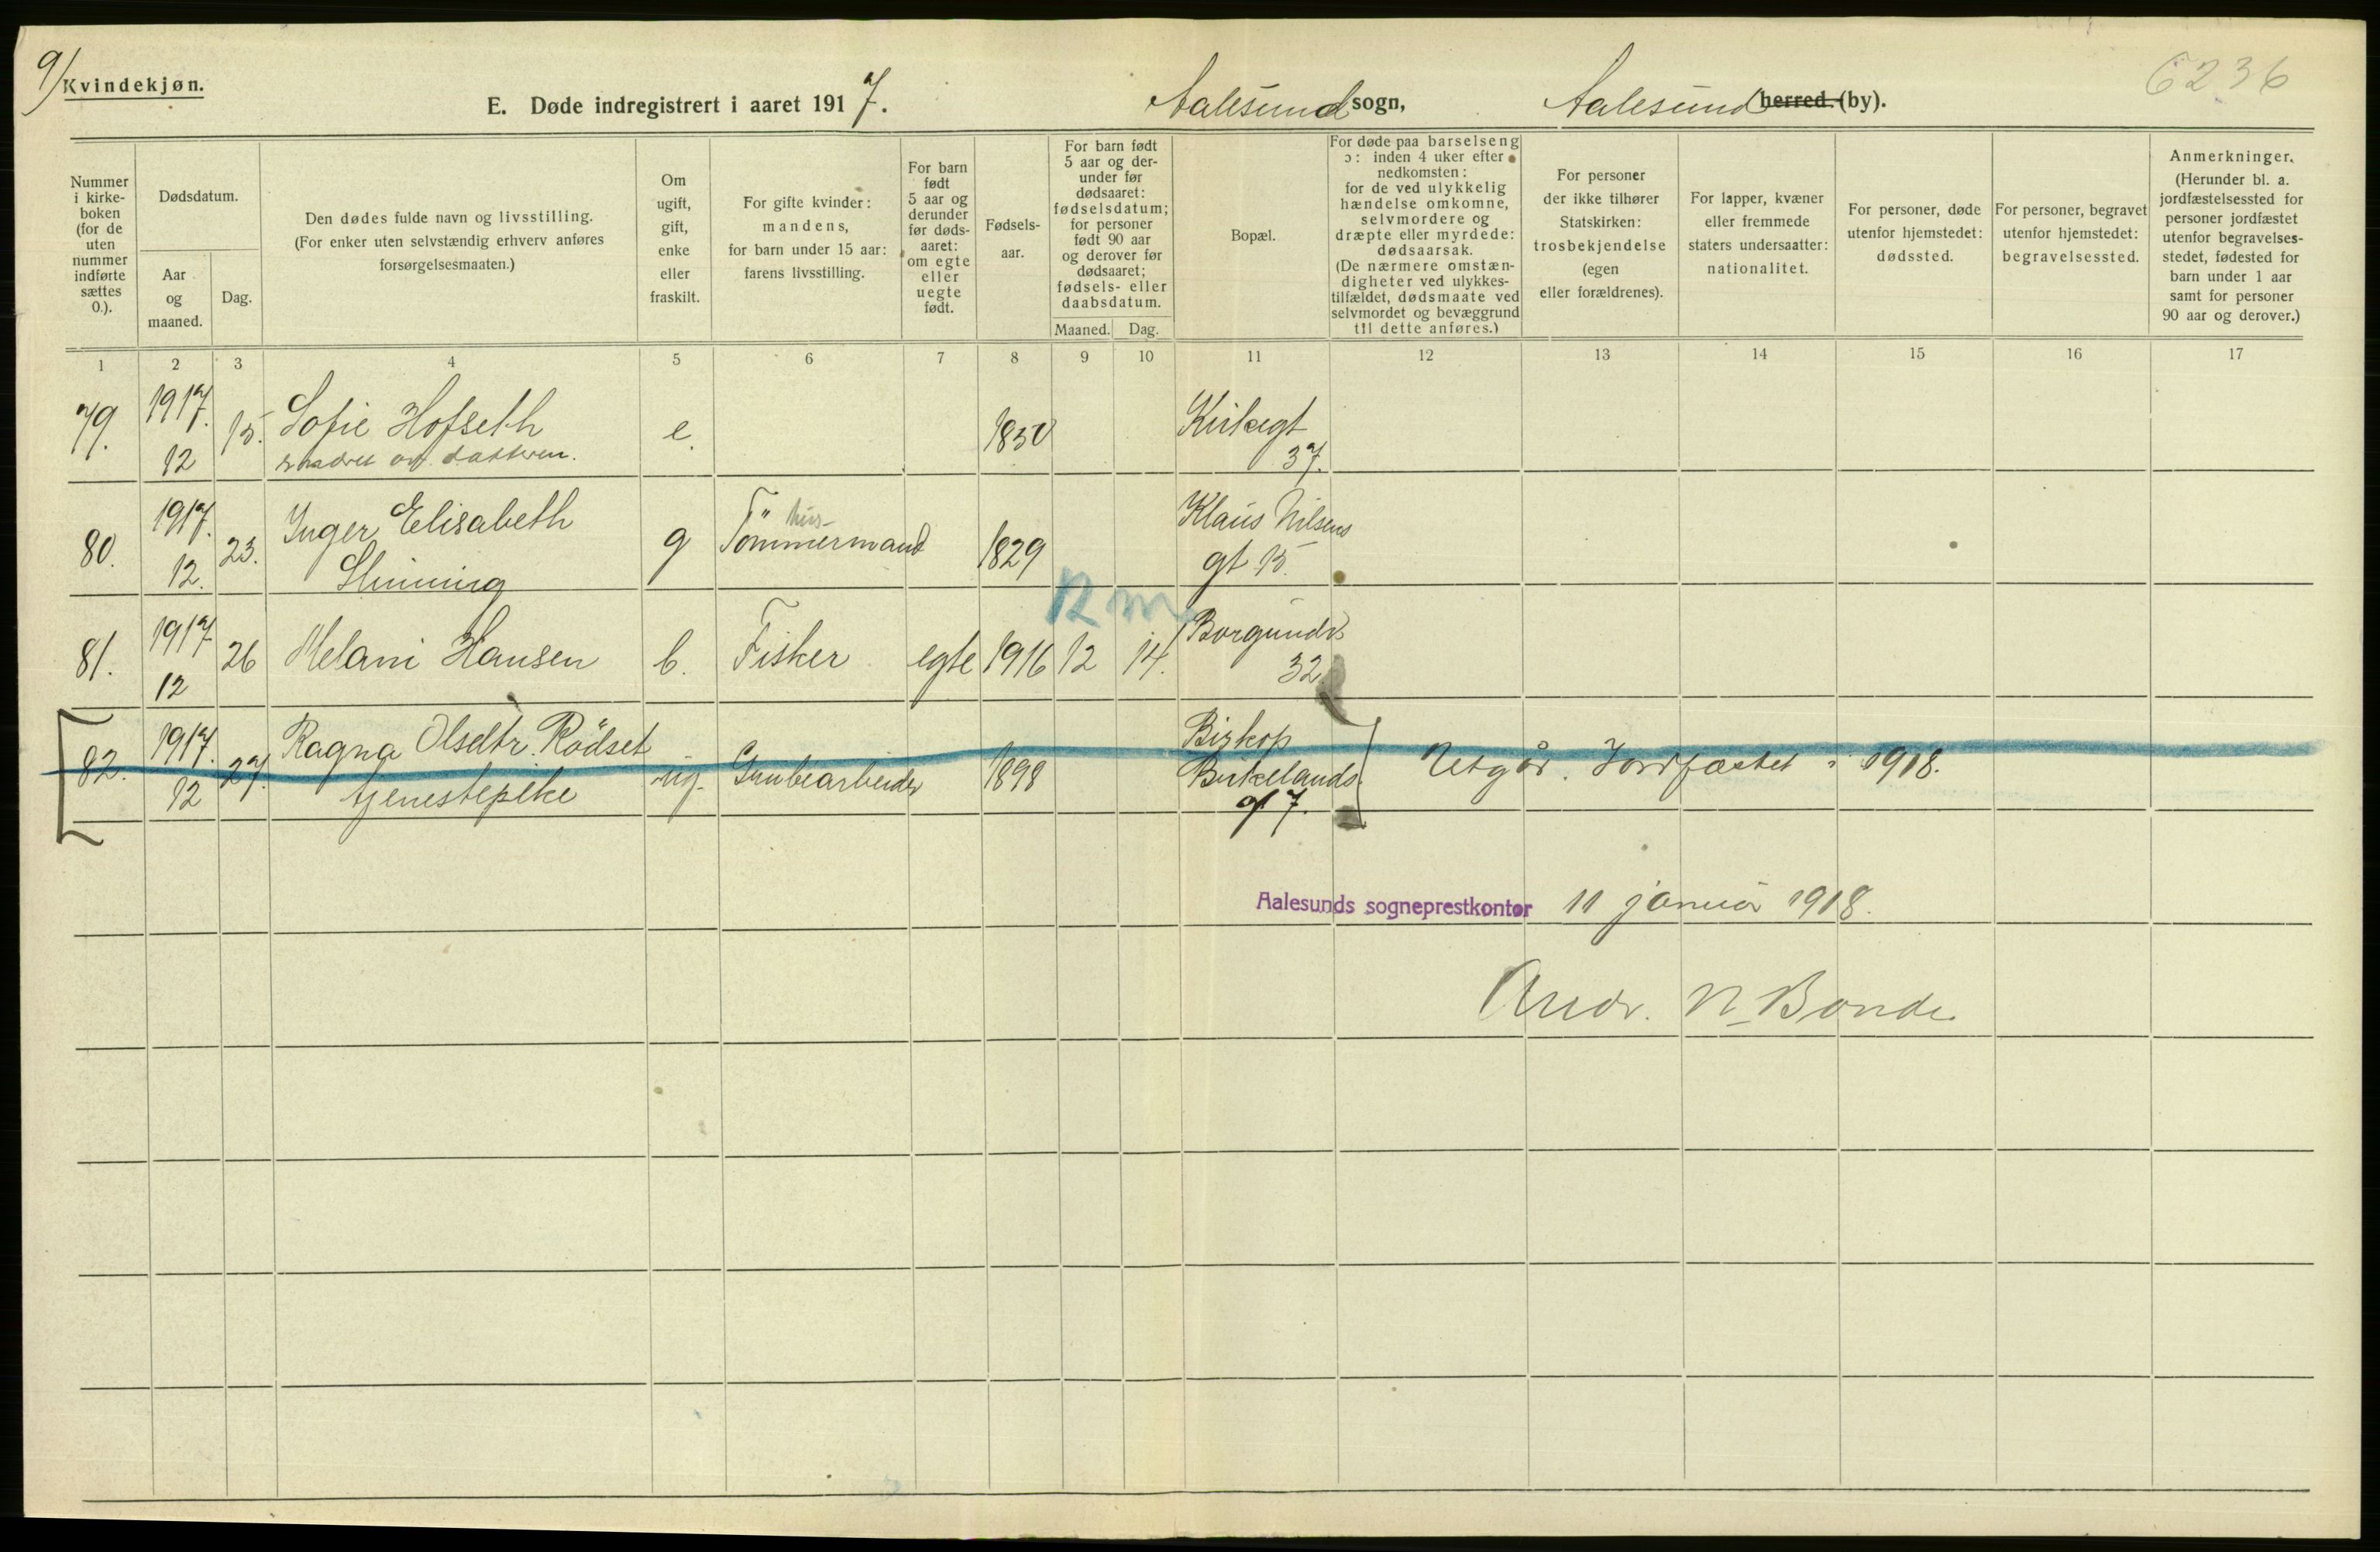 9/
Kvindekjøn.
6236
E. Døde indregistrert i aaret 1917. Aalesund sogn, Aalesund herred (by).
Nummer i kirkeboken (for de uten nummer indførte sættes 0.).
Dødsdatum.
Aar og maaned.
Dag.
Den dødes fulde navn og livsstilling.
(For enker uten selvstændig erhverv anføres forsørgelsesmaaten.)
Om ugift, gift, enke eller fraskilt.
For gifte kvinder: mandens, for barn under 15 aar: farens livsstilling.
For barn født 5 aar og derunder før dødsaaret: om egte eller uegte født.
Fødselsaar.
For barn født 5 aar og derunder før dødsaaret: fødselsdatum; for personer født 90 aar og derover før dødsaaret; fødsels- eller daabsdatum.
Maaned. Dag.
Bopæl.
For døde paa barselseng ɔ: inden 4 uker efter nedkomsten: for de ved ulykkelig hændelse omkomne, selvmordere og dræpte eller myrdede: dødsaarsak.
(De nærmere omstændigheter ved ulykkestilfældet, dødsmaate ved selvmordet og bevæggrund til dette anføres.)
For personer der ikke tilhører Statskirken: trosbekjendelse (egen eller forældrenes).
For lapper, kvæner eller fremmede staters undersaatter: nationalitet.
For personer, døde utenfor hjemstedet: dødssted.
For personer, begravet utenfor hjemstedet: begravelsessted.
Anmerkninger.
(Herunder bl. a. jordfæstelsessted for personer jordfæstet utenfor begravelsesstedet, fødested for barn under 1 aar samt for personer 90 aar og derover.)
1 2 3 4 5 6 7 8 9 10 11 12 13 14 15 16 17
79. 1917. 12 15. Sofie Hofseth e. 1850 Kirkegt 37.
av datteren.
80. 1917. 12. 23. Inger Elisabeth g hus- Tömmermand 1829 Klaus Nilsens gt 15.
81. 1917 12 26 Melani Hansen b. Fisker egte 1916 12 14. Borgundv 32
12 m
82. 1917. 12 27. Ragna Olsdtr. Rödset ug. Grubearbeider 1898 Biskop Birkelands gt 7. Utgår. Jordfæstet i 1918.
tjenestepike
Aalesunds sogneprestkontor 11 januar 1918.
Andr. N. Bonde